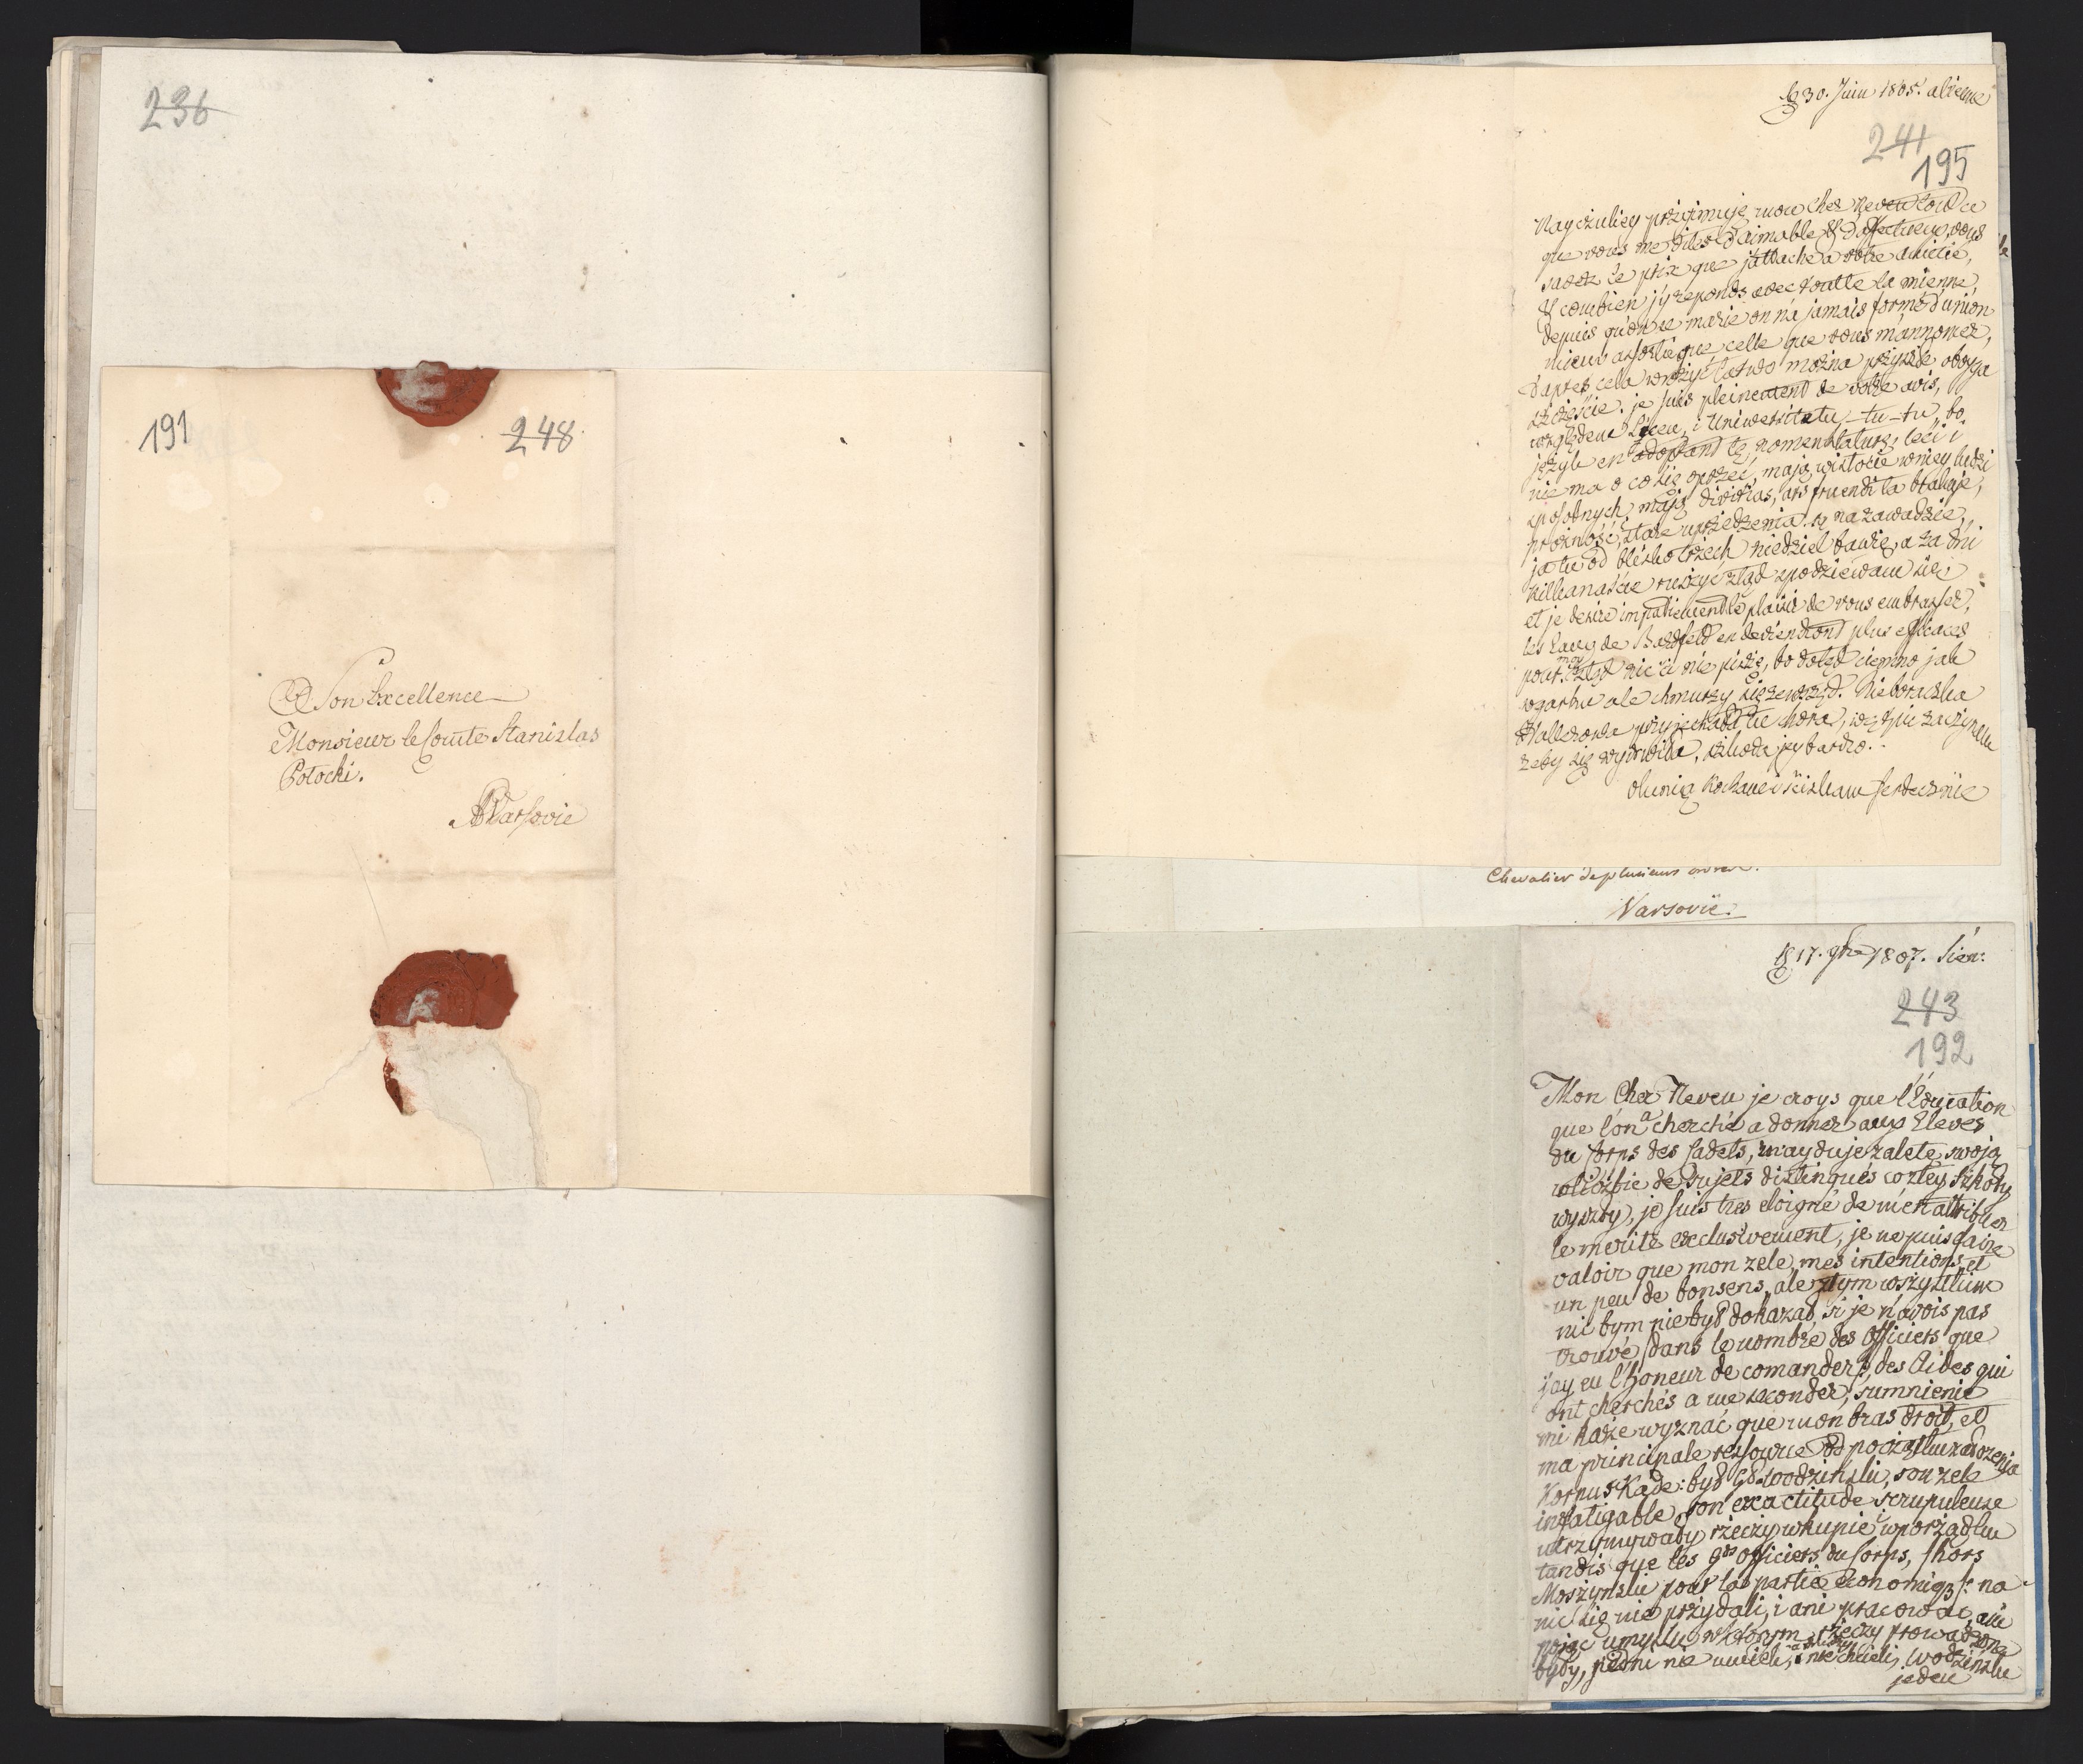 236
191
248
A Son Excellence
Monsieur le Comte Stanislas
Potocki.
a Varsovie
30. Juin 1805. a Vienne
241
195
Nayczuliey przyimuję mon cher Neveu tout ce
que vous me dites d'aimable & d'affectueux, vous
savez le prix que j'attache a votre amitié,
& combien j'y reponds avec toutte la mienne,
depuis qu'on se marie on n'a jamais formé d'union
mieux assortie que celle que vous m'annoncez,
d'apres cela wrożyć łatwo można przyszłe oboyga
szczęście. je suis pleinement de votre avis,
względem Liceu, i Uniwersitetu, tu-tu, bo
język en adoptant tę nomenklaturę, leci i
nie ma o co się oprzeć, mają wistocie wniey ludzi
sposobnych, mają divitias, ars fruendi ta brakuje,
prożność, stare uprzedzenia są na zawadzie,
ja tu od blisko trzech niedziel bawię, a za dni
kilkanaście ruszyć ztąd spodziewam się,
et je desire impatiement le plaisir de vous embrasser,
les Eaux de Bardfeld en deviendront plus efficaces
pour moy. ztąd nic ci nie piszę, bo dotąd ciemno jak
wgarku ale chmurzy się zewsząd. Nieboraczka
przyjechała tu chora, wątpić zaczynam
żeby się wydwiła, szkoda jey bardzo.
olunią Kochanę i sciskam serdecznie
Chevalier de plusieurs ordres.
Varsovie.
17. 9bre 1807. Sien:
243
192
Mon Cher Neveu je croys que l'Education
que l'on a cherché a donner aux Eleves
du Corps des Cadets, znayduje zaletę swoją
wliczbie de Sujets distingués co ztey Szkoły
wyszły, je suis tres eloigné de m'en attribuer
le merite exclusivement, je ne puis faire
valoir que mon zele, mes intentions, et
un peu de bonsens, ale ztym wszystkim
nic bym nie był dokazał, si je n'avois pas
trouvé dans le nombre des Officiers que
j'ay eu l'honeur de comander, des Aides qui
ont cherchés a me seconder, sumnienie
mi każe wyznać que mon bras droit, et
ma principale ressource od początku założenia
Korpus Kade: był Wodziński, son zele
infatigable, son exactitude scrupuleuse
utrzymywały rzeczy wkupie i wporządku
tandis que les gds Officiers du Corps, /hors
Moszynski pour la partie Economiq3/: na
nic się nie przydali, i ani pracować, ani
pojąć umysłu wktorym rzeczy prowadzone
były, jedni nie umieli, a drudzy nie chcieli, Wodzinski
jeden